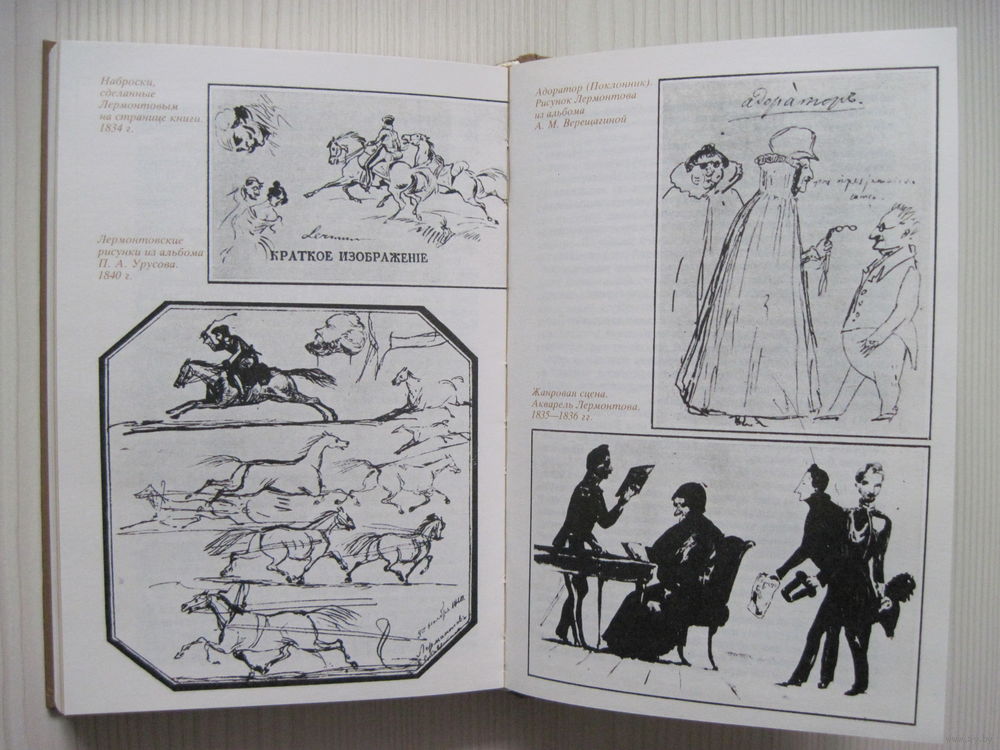 Наброски,
сделанные
Лермонтовым
на странице книги.
1834 г.
КРАТКОЕ ИЗОБРАЖЕНІЕ
Лермонтовские
рисунки из альбома
П. А. Урусова.
1840 г.
Лермонтовъ
Адоратор (Поклонник).
Рисунок Лермонтова
из альбома
А. М. Верещагиной
адораторъ.
Жанровая сцена.
Акварель Лермонтова.
1835—1836 гг.